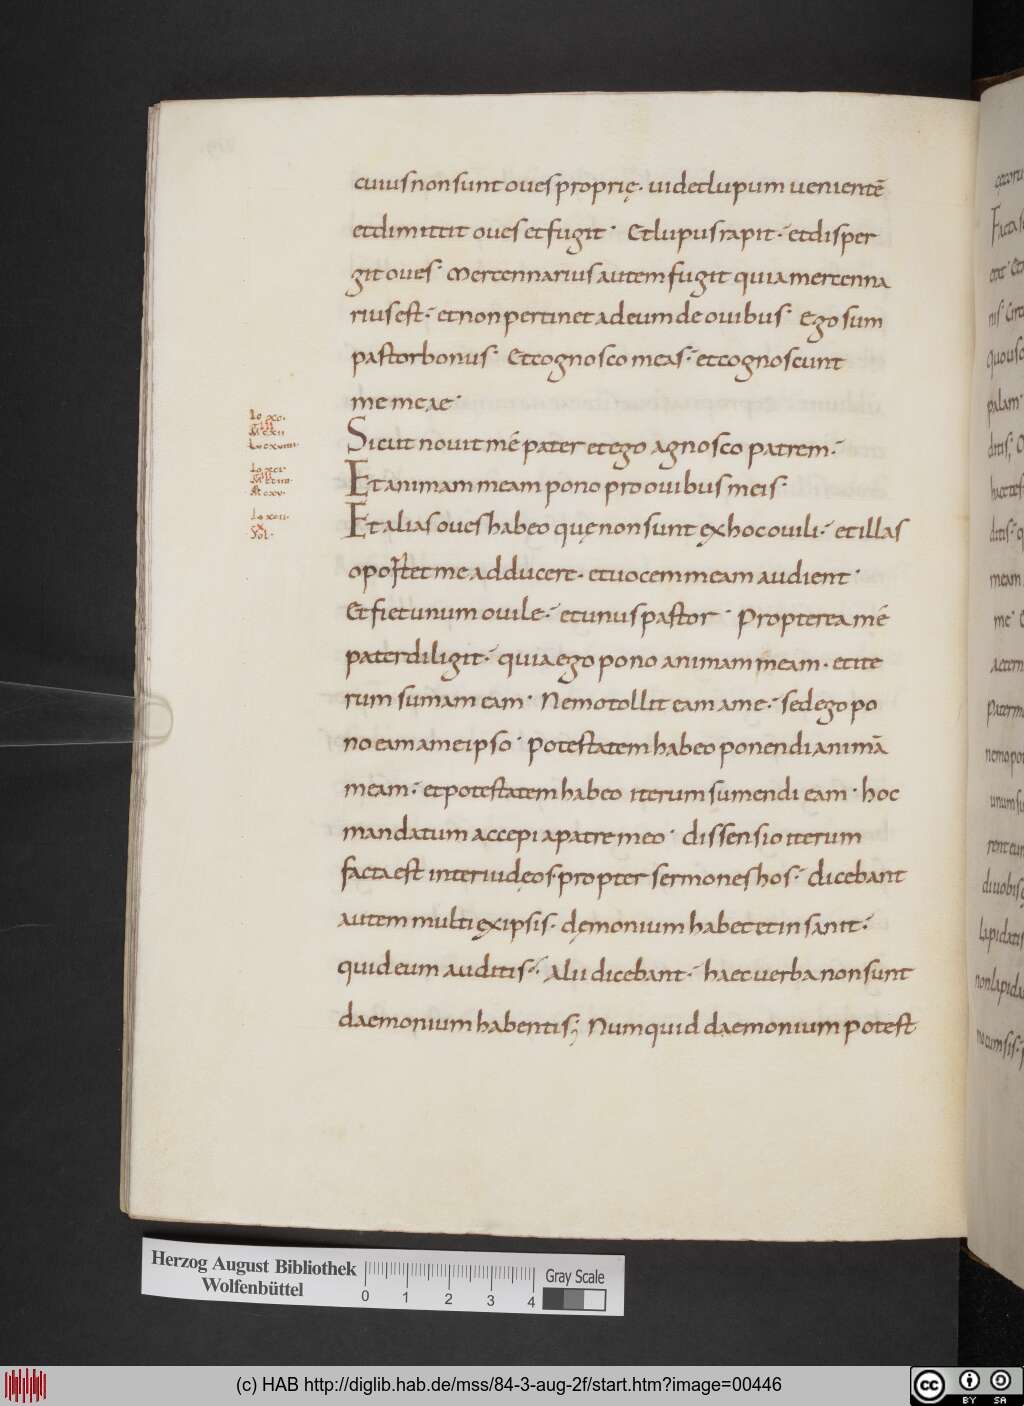 cuius non sunt oues proprię. uidet lupum uenientē
et dimittit oues et fugit. Et lupus rapit. et disper
git oues. Mercennarius autem fugit quia mercenna
rius est. et non pertinet ad eum de ouibus. Ego sum
pastor bonus. Et cognosco meas. et cognoscunt
me meae.
Sicut nouit mé pater et ego agnosco patrem.
Et animam meam pono pro ouibus meis.
Et alias oues habeo quę non sunt ęx hoc ouili. et illas
oportet me adducere. et uocem meam audient.
Et fiet unum ouile. et unus pastor. Propterea mé
pater diligit. quia ego pono animam meam. et ite
rum sumam eam. Nemo tollit eam a me. sed ego po
no eam a me ipso. potestatem habeo ponendi animā
meam. et potestatem habeo iterum sumendi eam. hoc
mandatum accepi a patre meo. dissensio iterum
facta est inter iudęos propter sermones hos. dicebant
autem multi ęx ipsis. dęmonium habet et insanit.
quid eum auditis. Alii dicebant. haec uerba non sunt
daemonium habentis; Numquid daemonium potest
Herzog August Bibliothek
Wolfenbüttel
0 1 2 3 4
Gray Scale
(c) HAB http://diglib.hab.de/mss/84-3-aug-2f/start.htm?image=00446
cc BY SA